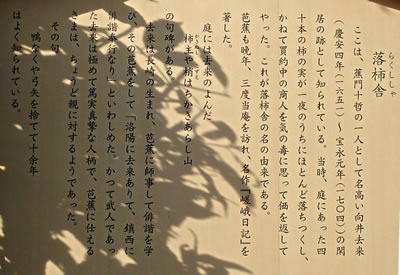 らくししゃ
落柿舎
ここは、蕉門十哲の一人として名高い向井去来
(慶安四年(一六五一)〜宝永元年(一七〇四))の閑
居の跡として知られている。当時、庭にあった四
十本の柿の実が一夜のうちにほとんど落ちつくし、
かねて買約中の商人を気の毒に思って価を返して
やった。これが落柿舎の名の由来である。
芭蕉も晩年、三度当庵を訪れ、名作『嵯峨日記』を
著した。
庭には去来のよんだ
柿主や梢はちかきあらし山
の句碑がある。
去来は長崎の生まれ、芭蕉に師事して俳諧を学
び、その芭蕉をして「洛陽に去来ありて、鎮西に
俳諧奉行なり」といわしめた。かつて武人であっ
た去来は極めて篤実真摯な人柄で、芭蕉に仕える
さまは、ちょうど親に対するようであった。
その句
鴨なくや弓矢を捨てて十余年
はよく知られている。